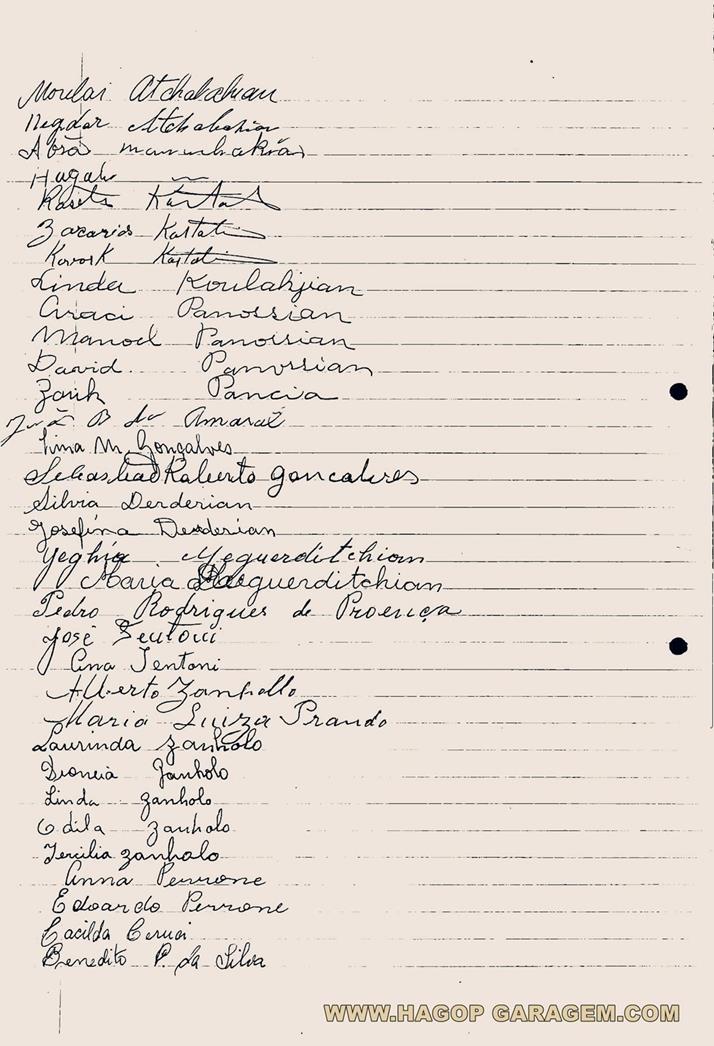 Atchabahian
Atchabahian
Abrão
Hagab
Kartal
Zacarias
Kevork
Linda Koulahjian
Araci Panossian
Manoel Panossian
David Panossian
Zarik Pancia
João B do Amaral
Lima M. Gonçalves
Sebastião Roberto Goncalves
Silvia Derderian
Josefina Derderian
Yeghia Meguerditchian
Maria Meguerditchian
Pedro Rodrigues de Proença
José
Ana Tentoni
Alberto Zanhollo
Maria Luiza Prando
Laurinda Zanholo
Dioneia Zanholo
Linda Zanholo
Odila Zanholo
Tercilia Zanholo
Anna Perrone
Edoardo Perrone
Cacilda
Benedito P. da Silva
WWW.HAGOP GARAGEM.COM